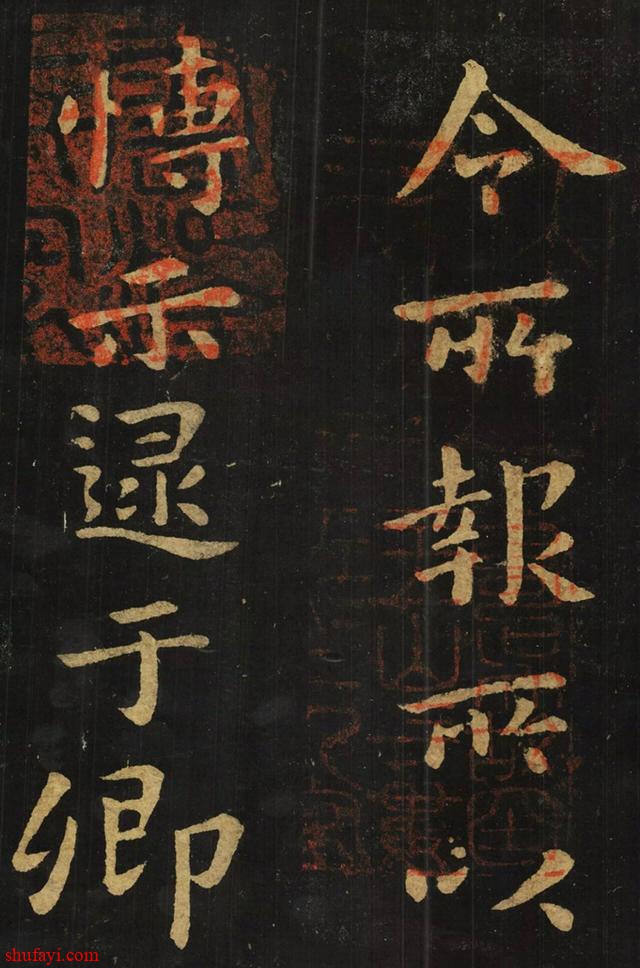 令所報所以
博示逯于卿
shufayi.com